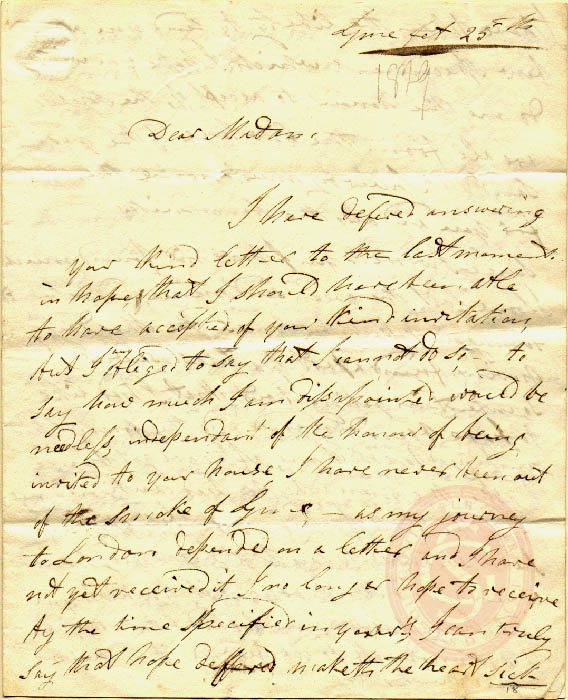 Lyme Feb 25th
1829
Dear Madam,
I have defered answering
your kind letter to the last moment
in hope that I should have been able
to have accepted of your kind invitation,
but I am obliged to say that I cannot do so — to
say how much I am disappointed would be
needless, independant of the honour of being
invited to your house, I have never been out
of the smoke of Lyme, — as my journey
to London depended on a letter and I have
not yet received it I no longer hope to receive
by the time specified in yours, I can truly
say that hope deffered maketh the heart sick
18